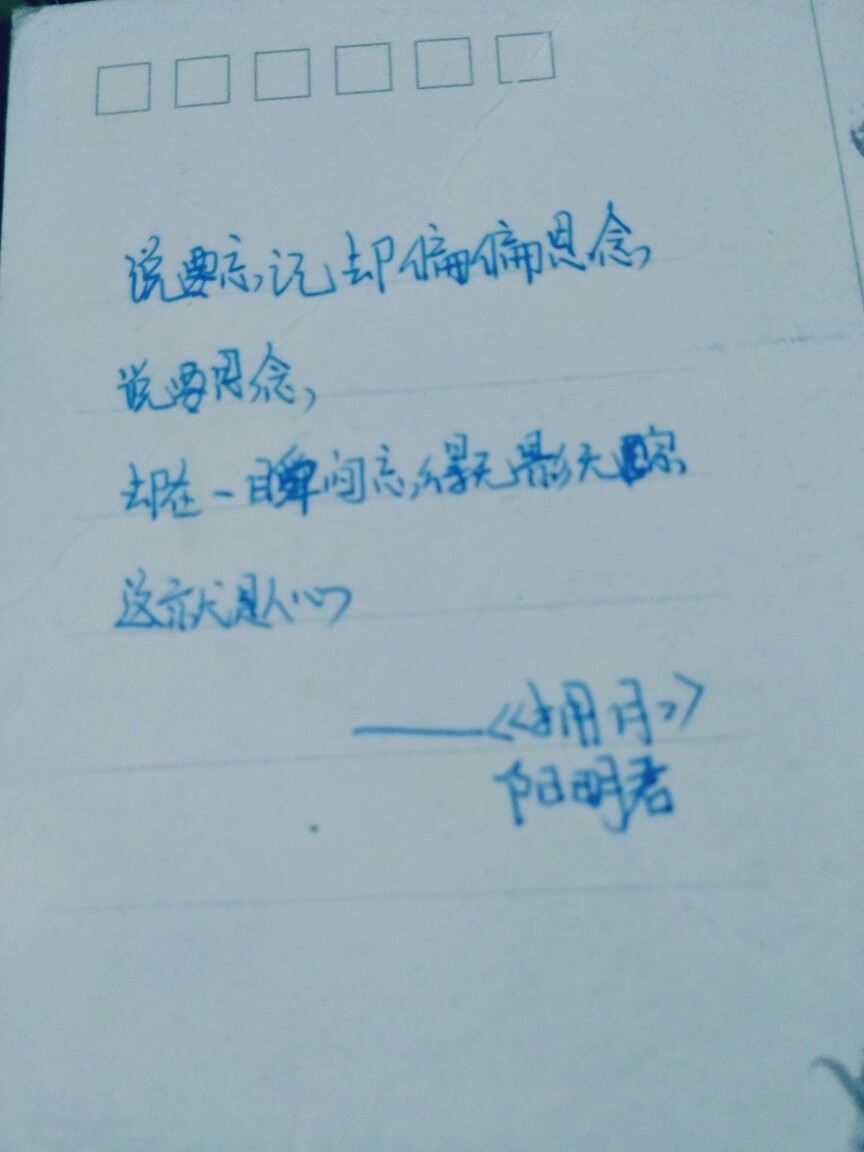 说要忘记却偏偏思念,
说要思念,
却在一瞬间忘得无影无踪
这就是人心
——《拥月》
阳明君